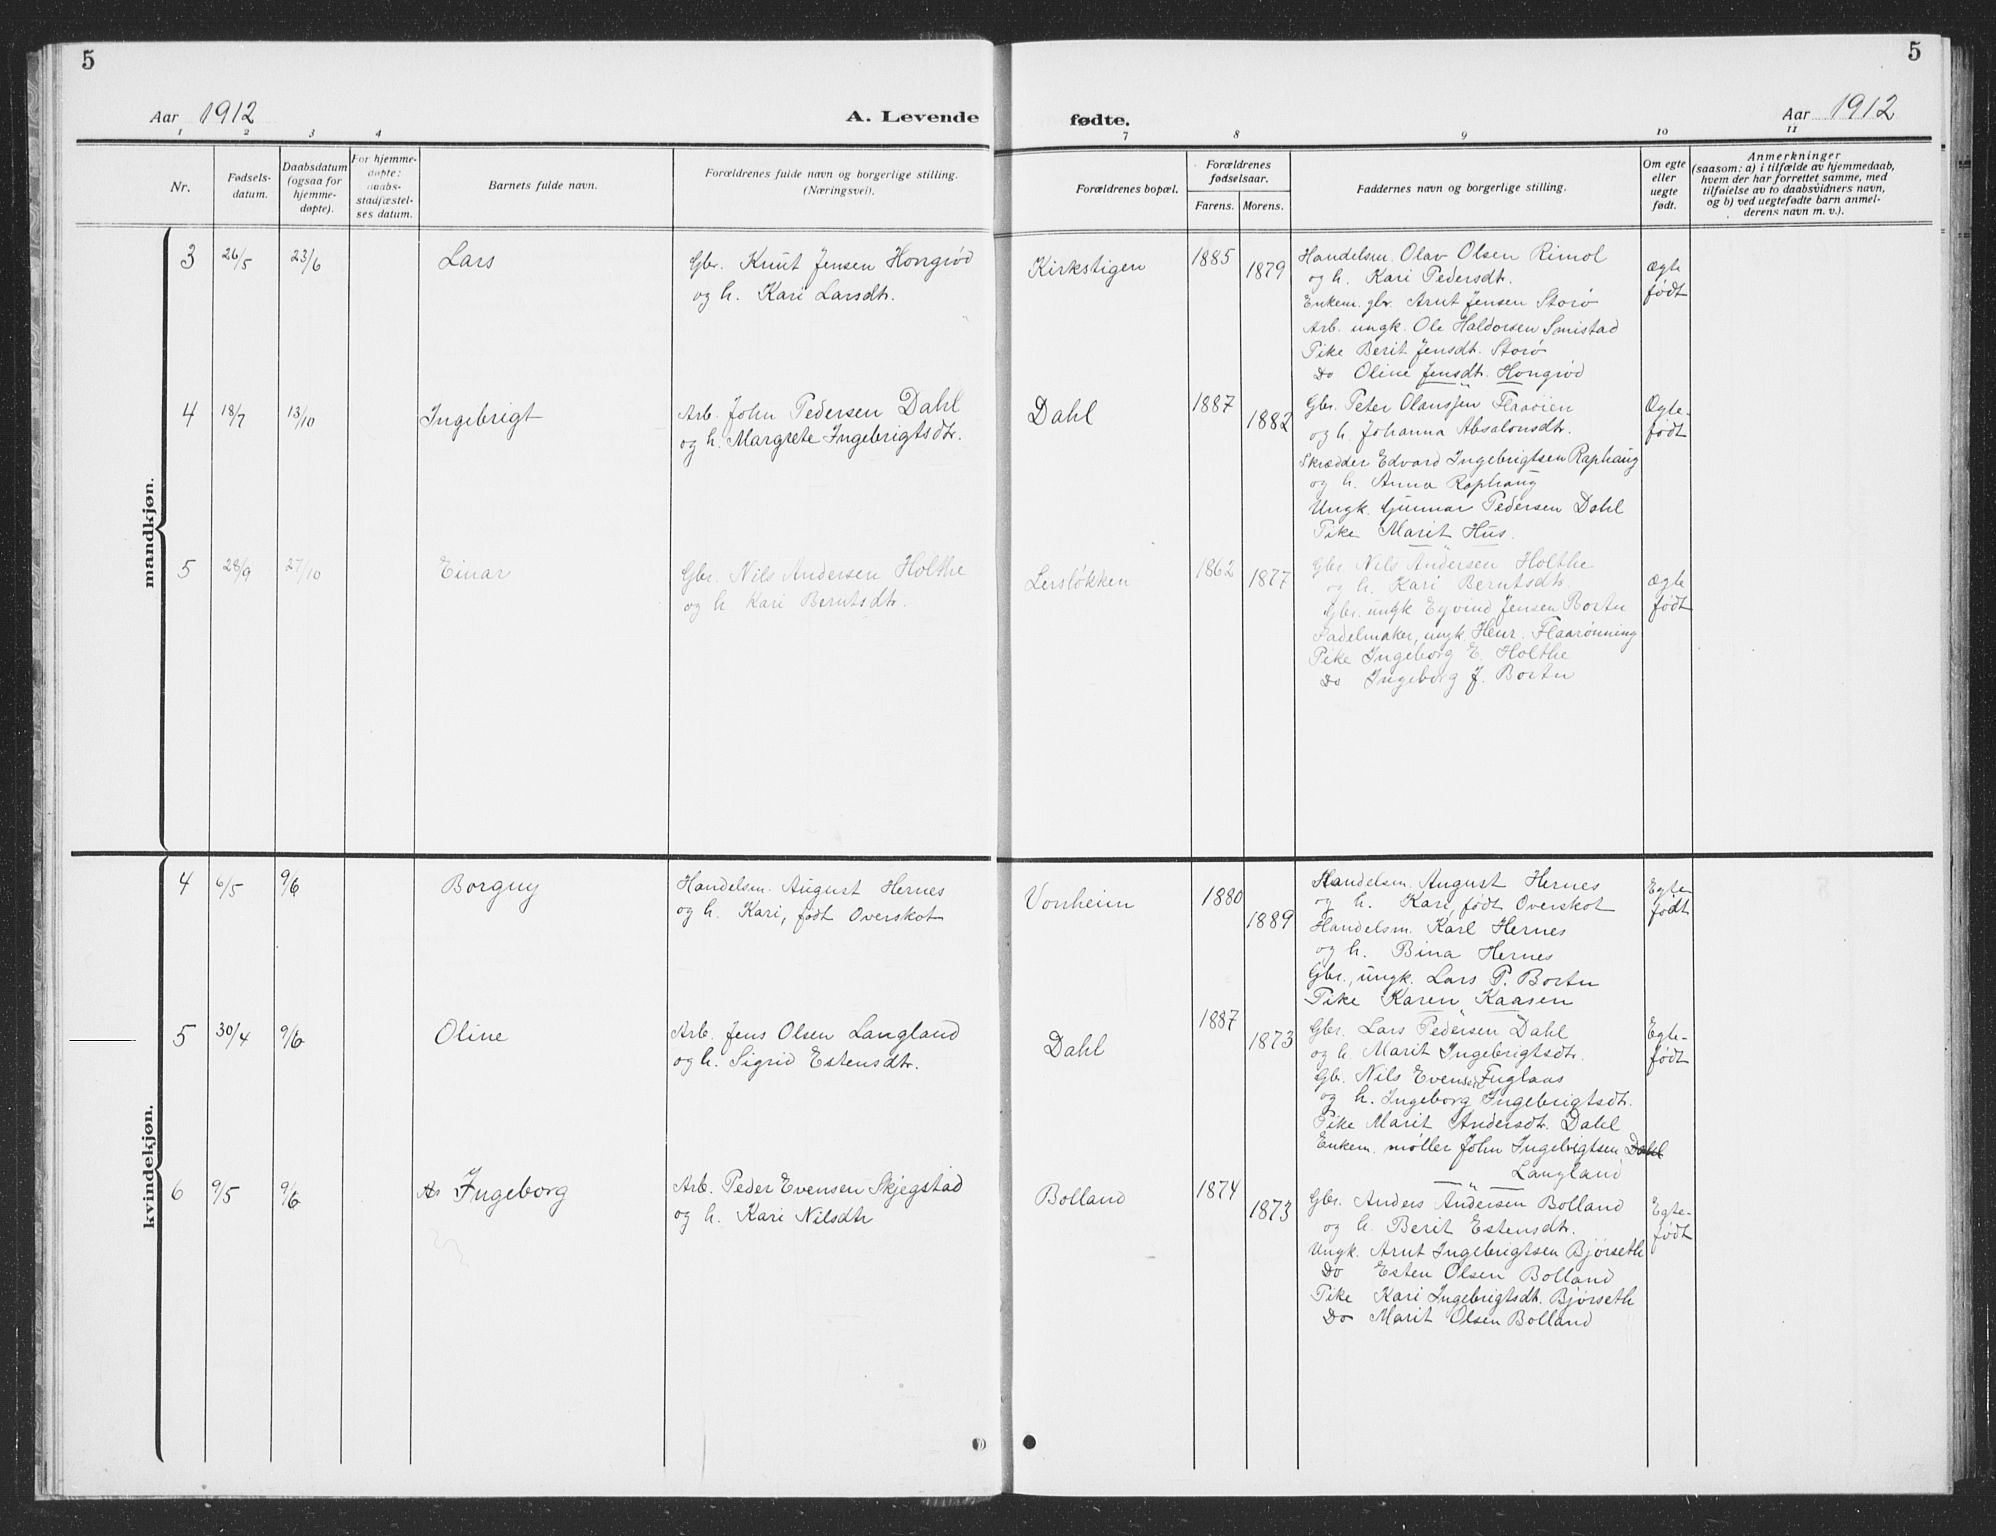 5
5
Aar 1912
A. Levende
fødte.
Aar 1912
1 2 3 4
7 8 9 10 11
Nr.
Fødsels-
datum.
Daabsdatum
(ogsaa for
hjemme-
døpte).
For hjemme-
døpte:
daabs-
stadfæstel-
ses datum.
Barnets fulde navn.
Forældrenes fulde navn og borgerlige stilling.
(Næringsvei).
Forældrenes bopæl.
Forældrenes
fødselsaar.
Farens. Morens.
Faddernes navn og borgerlige stilling.
Om egte
eller
uegte
født.
Anmerkninger
(saasom: a) i tilfælde av hjemmedaab,
hvem der har forrettet samme, med
tilføielse av to daabsvidners navn,
og b) ved uegtefødte barn anmel-
derens navn m. v.).
mandkjøn.
3 26/5 23/6 Lars
Gbr. Knut Jensen Hongrød
og h. Kari Larsdtr.
Kirkstigen 1885 1879
Handelsm. Olav Olsen Rimol
og h. Kari Pedersdtr.
Enkem. gbr. Arnt Jensen Storø
Arb. ungk. Ole Haldorsen Smistad
Pike Berit Jensdtr. Storø
Do Oline Jensdtr. Hongrød
ægte
født
4 18/7 13/10 Ingebrigt
Arb. John Pedersen Dahl
og h. Margrete Ingebrigtsdtr.
Dahl 1887 1882
Gbr. Peter Olanssen Flaaøien
og h. Johanna Absalonsdtr.
Skrædder Edvard Ingebrigtsen Raphaug
og h. Anna Raphaug
Ungk. Gunnar Pedersen Dahl
Pike Marit Hus.
Ægte-
født
5 28/9 27/10 Einar
Gbr. Nils Andersen Holthe
og h. Kari Berntsdtr.
Lersløkken 1862 1877
Gbr. Nils Andersen Holthe
og h. Kari Berntsdtr.
Gbr. ungk Eyvind Jensen Bortn
Sadelmaker, ungk. Henr. Flaarønning
Pike Ingeborg E. Holthe
Do Ingeborg J. Bortn
ægte
født
kvindekjøn.
4 6/5 9/6 Borgny
Handelsm. August Hernes
og h. Kari, født Overskot
Vonheim 1880 1889
Handelsm. August Hernes
og h. Kari, født Overskot
Handelsm. Karl Hernes
og h. Bina Hernes
Gbr., ungk. Lars P. Bortn
Pike Karen Kaasen
Egte
født
5 30/4 9/6 Oline
Arb. Jens Olsen Langland
og h. Sigrid Estensdtr.
Dahl 1887 1873
Gbr. Lars Pedersen Dahl
og h. Marit Ingebrigtsdtr.
Gbr. Nils Evensen Fuglaas
og h. Ingeborg Ingebrigtsdtr.
Pike Marit Andersdtr. Dahl
Enkem. møller John Ingebrigtsen Dahl
Langland
Egte-
født
6 9/5 9/6 Ingeborg
Arb. Peder Evensen Skjegstad
og h. Kari Nilsdtr
Bolland 1874 1873
Gbr. Anders Andersen Bolland
og h. Berit Estensdtr.
Ungk. Arnt Ingebrigtsen Bjørseth
Do Esten Olsen Bolland
Pike Kari Ingebrigtsdtr. Bjørseth
Do Marit Olsen Bolland
Egte-
født